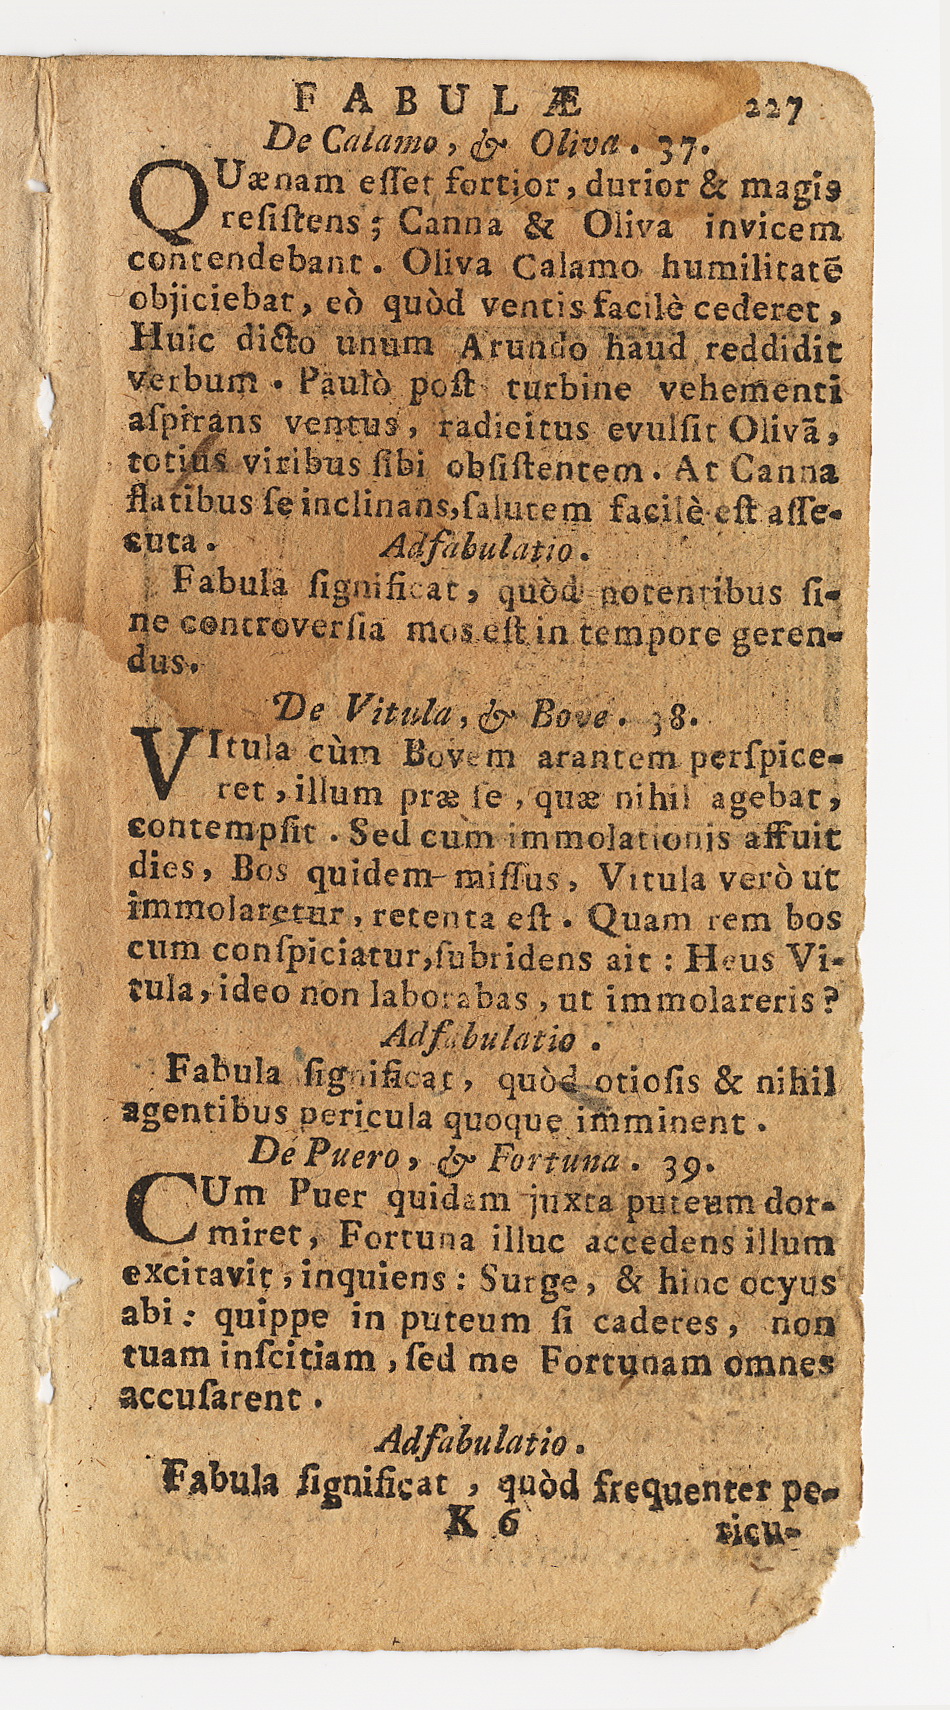 FABULÆ 227
De Calamo, & Oliva. 37.
QUænam eſſet fortior, durior & magis
reſiſtens; Canna & Oliva invicem
contendebant. Oliva Calamo humilitatē
objiciebat, eò quòd ventis facilè cederet,
Huic dicto unum Arundo haud reddidit
verbum. Paulò poſt turbine vehementi
aſpirans ventus, radicitus evulſit Olivā,
totius viribus ſibi obſiſtentem. At Canna
flatibus ſe inclinans, ſalutem facilè eſt aſſe-
cuta. Adfabulatio.
Fabula ſignificat, quòd potentibus ſi-
ne controverſia mos eſt in tempore geren-
dus.
De Vitula, & Bove. 38.
VItula cùm Bovem arantem perſpice-
ret, illum præ ſe, quæ nihil agebat,
contempſit. Sed cùm immolationis affuit
dies, Bos quidem miſſus, Vitula verò ut
immolaretur, retenta eſt. Quam rem bos
cum conſpiciatur, ſubridens ait: Heus Vi-
tula, ideo non laborabas, ut immolareris?
Adfabulatio.
Fabula ſignificat, quòd otioſis & nihil
agentibus pericula quoque imminent.
De Puero, & Fortuna. 39.
CUm Puer quidam juxta puteum dor-
miret, Fortuna illuc accedens illum
excitavit, inquiens: Surge, & hinc ocyus
abi: quippe in puteum ſi caderes, non
tuam inſcitiam, ſed me Fortunam omnes
accuſarent.
Adfabulatio.
Fabula ſignificat, quòd frequenter pe-
K 6 ricu-